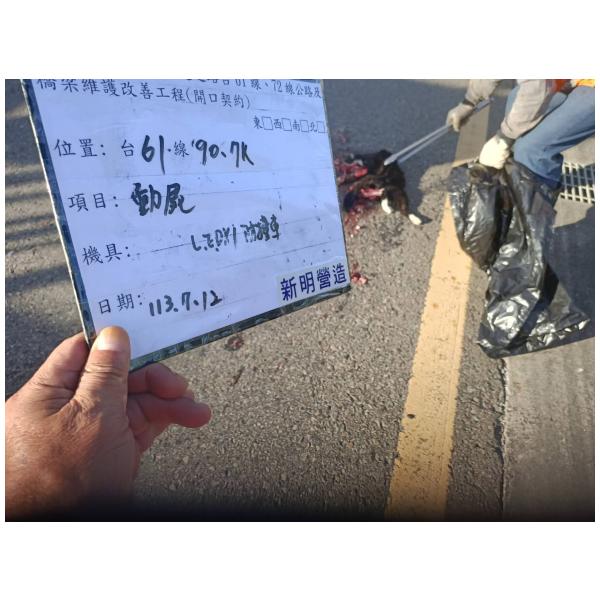 台61線、72線公路及
橋梁維護改善工程(開口契約)
東□西□南□北□
位置: 台61線 90.7K
項目: 動屍
機具:
日期: 113.7.12
新明營造